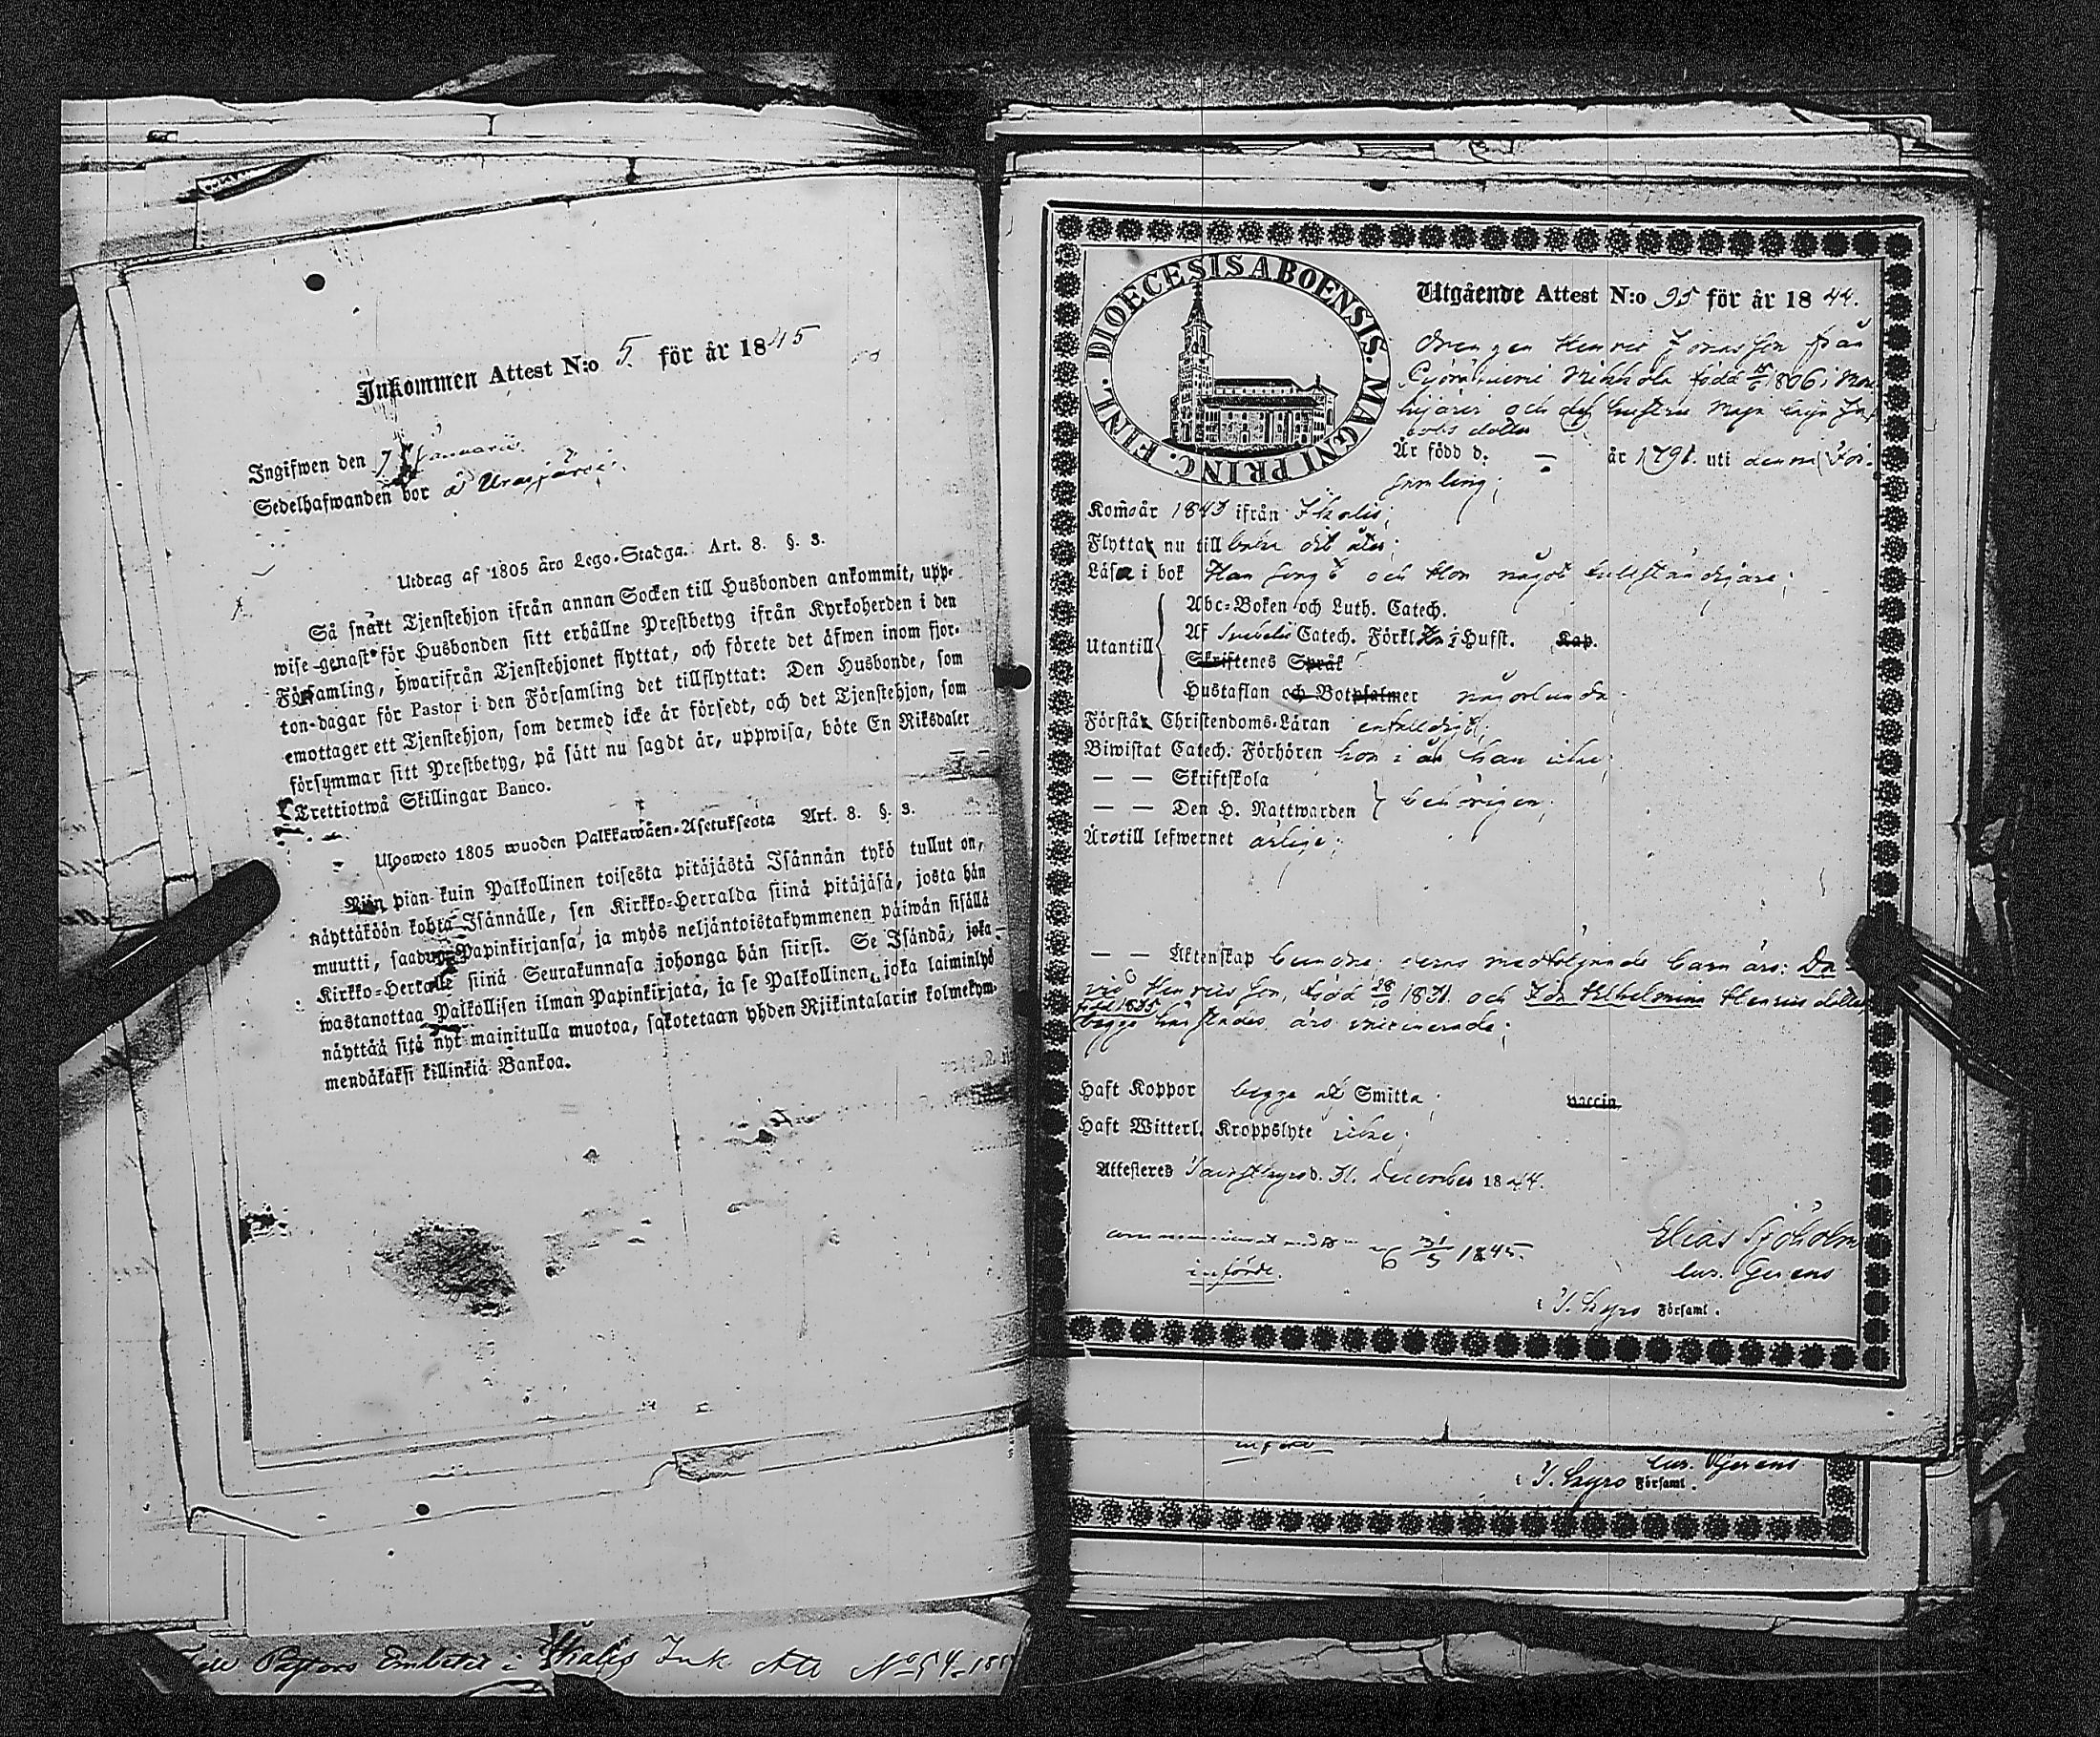 Inkommen Attest N:o 5. för år 1845
Ingifwen den 7 Januarii.
Sedelhafwanden bor å Urasjärvi.
Utdrag af 1805 års Lego-Stadga. Art. 8. §. 3.
Så snart Tjenstehjon ifrån annan Socken till Husbonden ankommit, upp-
wise genast för Husbonden sitt erhållne Prestbetyg ifrån Kyrkoherden i den
Församling, hwarifrån Tjenstehjonet flyttat, och förete det äfwen inom fjor-
ton dagar för Pastor i den Församling det tillflyttat: Den Husbonde, som
emottager ett Tjenstehjon, som dermed icke är försedt, och det Tjenstehjon, som
försymmar sitt Prestbetyg, på sätt nu sagdt är, uppwisa, böte En Riksdaler
Trettiotwå Skillingar Banco.
Ulosweto 1805 wuoden Palkkawäen-Asetuksesta Art. 8. §. 3.
Niin pian kuin Palkollinen toisesta pitäjästä Isännän tykö tullut on,
näyttäköön kohta Isännälle, sen Kirkko-Herralda siinä pitäjäsä, josta hän
muutti, saadun Papinkirjansa, ja myös neljäntoistakymmenen päiwän sisällä
Kirkko-Herralle siinä Seurakunnasa johonga hän siirsi. Se Isändä, joka
wastanottaa Palkollisen ilman Papinkirjata, ja se Palkollinen, joka laiminlyö
näyttää sitä nyt mainitulla muotoa, sakotetaan yhden Riikintalarin kolmekym-
mendäkaksi killinkiä Bankoa.
Till Pastors Embetet i Ikalis Ink Att No 54
DIOECESIS ABOENSIS. MAGNI PRINC. FINL.
Utgående Attest N:o 95 för år 1844.
Drengen Henric Jonasson från
Nikkola född 1806 i
och des hustru Maja
dotter
Är född d. — år 1791. uti denna För-
samling;
Kom år 1843 ifrån Ikalis;
Flyttar nu till åter;
Läsa i bok Han och Hon något fullständigare;
Utantill
Abc-Boken och Luth. Catech.
Af Svebelii Catech. Förkl. Hufst. Kap.
Skriftenes Språk
Hustaflan och Botpsalmer någorlunda
Förstår Christendoms-Läran enfaldigt;
Biwistat Catech. Förhören hon i år han icke;
— — Skriftskola
— — Den H. Nattwarden behörigen;
Äro till lefwernet ärlige;
— — Äktenskap deras medföljande barn äro: Da-
vid Henricsson, född 28/10 1831. och Ida Vilhelmina Henrics dotter,
född 1835
begge äro vaccinerade;
Haft Koppor begge af Smitta; vaccin.
Haft Witterl. Kroppslyte icke;
Attesteres Tavastkyro d. 31. December 1844.
31/3 1845.
införde.
Elias Sjöholm
i T. Kyro Församl.
i T. Kyro Församl.